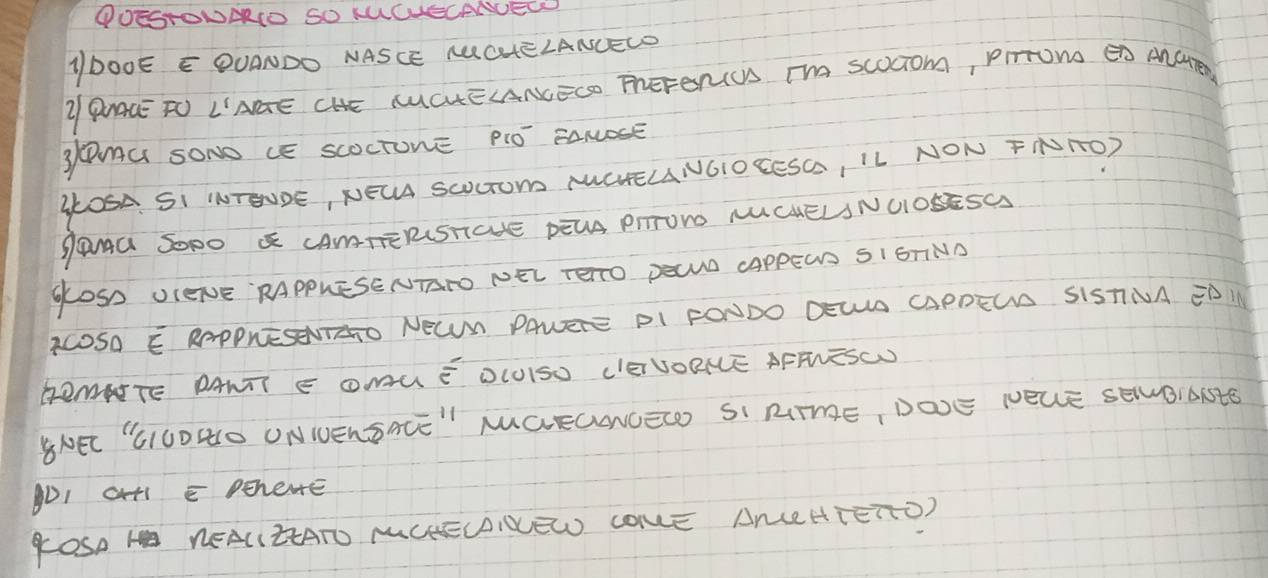 QUESTONARIO SU MICHELANGELO
1) DOVE E QUANDO NASCE MICHELANGELO
2) QUALE FU L'ARTE CHE MICHELANGELO PREFERIVA TRA SCULTURA, PITTURA ED ARCHITET
3) QUALI SONO LE SCULTURE PIÙ FAMOSE
4) COSA SI INTENDE, NELLA SCULTURA MICHELANGIOLESCA, IL NON FINITO?
5) QUALI SONO LE CARATTERISTICHE DELLA PITTURA MICHELANGIOLESCA
6) COSA VIENE RAPPRESENTATO NEL TETTO DELLA CAPPELLA SISTINA
7) COSA È RAPPRESENTATO NELLA PARETE DI FONDO DELLA CAPPELLA SISTINA ED IN
PARTI E QUALI È DIVISO L'ENORME AFFRESCO
8) NEL "GIUDIZIO UNIVERSALE" MICHELANGELO SI RITRAE, DOVE NELLE SEMBIANZE
DI CHI E PERCHÈ
9) COSA HA REALIZZATO MICHELANGELO COME ARCHITETTO?